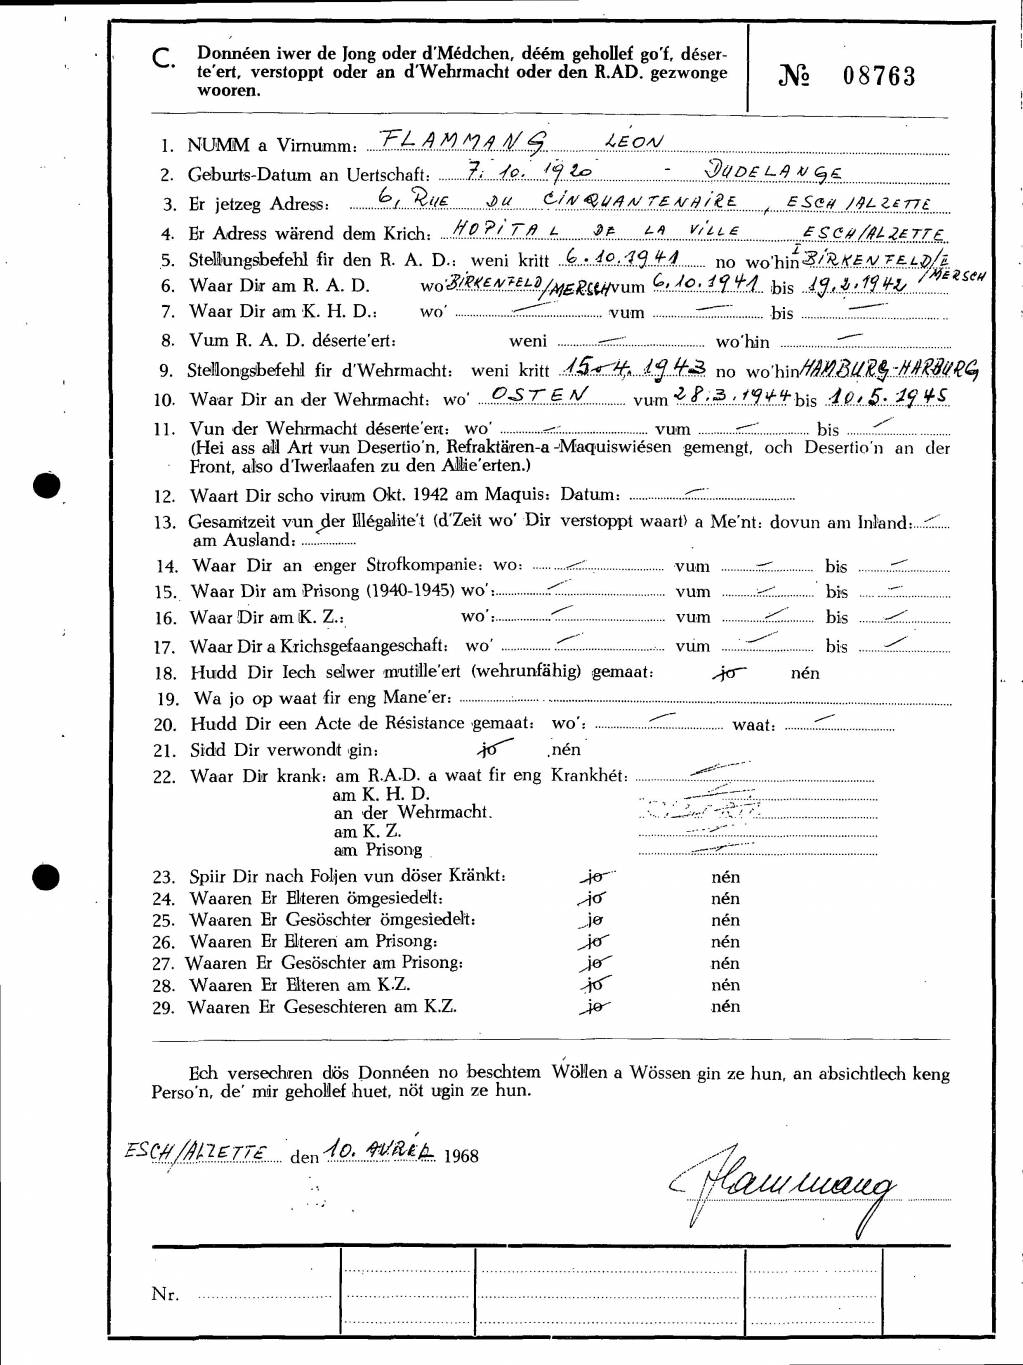 C. Donnéen iwer de Jong oder d'Médchen, déém gehollef go'f, déser-
te'ert, verstoppt oder an d'Wehrmacht oder den R.AD. gezwonge
wooren.
№ 08763
1. NUMM a Virnumm: FLAMMANG LÉON
2. Geburts-Datum an Uertschaft: 7. 10. 1920 - DUDELANGE
3. Er jetzeg Adress: 6, RUE DU CINQUANTENAIRE, ESCH/ALZETTE
4. Er Adress wärend dem Krich: HOPITAL DE LA VILLE ESCH/ALZETTE
5. Stellungsbefehl fir den R. A. D.: weni kritt 6.10.1941 no wo'hin BIRKENFELD/
MERSCH
6. Waar Dir am R. A. D. wo' BIRKENFELD/MERSCH vum 6.10.1941 bis 19.2.1942
7. Waar Dir am K. H. D.: wo' — vum — bis —
8. Vum R. A. D. déserte'ert: weni — wo'hin —
9. Stellongsbefehl fir d'Wehrmacht: weni kritt 15.4.1943 no wo'hin HAMBURG-HARBURG
10. Waar Dir an der Wehrmacht: wo' OSTEN vum 28.3.1944 bis 10.5.1945
11. Vun der Wehrmacht déserte'ert: wo' — vum — bis —
(Hei ass all Art vun Desertio'n, Refraktären-a-Maquiswiésen gemengt, och Desertio'n an der
Front, also d'Iwerlaafen zu den Allie'erten.)
12. Waart Dir scho virum Okt. 1942 am Maquis: Datum: —
13. Gesamtzeit vun der Illégalite't (d'Zeit wo' Dir verstoppt waart) a Me'nt: dovun am Inland: —
am Ausland:
14. Waar Dir an enger Strofkompanie: wo: — vum — bis —
15. Waar Dir am Prisong (1940-1945) wo': — vum — bis —
16. Waar Dir am K. Z.: wo': — vum — bis —
17. Waar Dir a Krichsgefaangeschaft: wo' — vum — bis —
18. Hudd Dir Iech selwer mutille'ert (wehrunfähig) gemaat: jo nén
19. Wa jo op waat fir eng Mane'er:
20. Hudd Dir een Acte de Résistance gemaat: wo': — waat: —
21. Sidd Dir verwondt gin: jo nén
22. Waar Dir krank: am R.A.D. a waat fir eng Krankhét: —
am K. H. D. —
an der Wehrmacht.
am K. Z. —
am Prisong —
23. Spiir Dir nach Foljen vun döser Kränkt: jo nén
24. Waaren Er Elteren ömgesiedelt: jo nén
25. Waaren Er Gesöschter ömgesiedelt: jo nén
26. Waaren Er Elteren am Prisong: jo nén
27. Waaren Er Gesöschter am Prisong: jo nén
28. Waaren Er Elteren am K.Z. jo nén
29. Waaren Er Geseschteren am K.Z. jo nén
Ech versechren dös Donnéen no beschtem Wöllen a Wössen gin ze hun, an absichtlech keng
Perso'n, de' mir gehollef huet, nöt ugin ze hun.
ESCH/ALZETTE den 10. AVRIL 1968
Flammang
Nr.